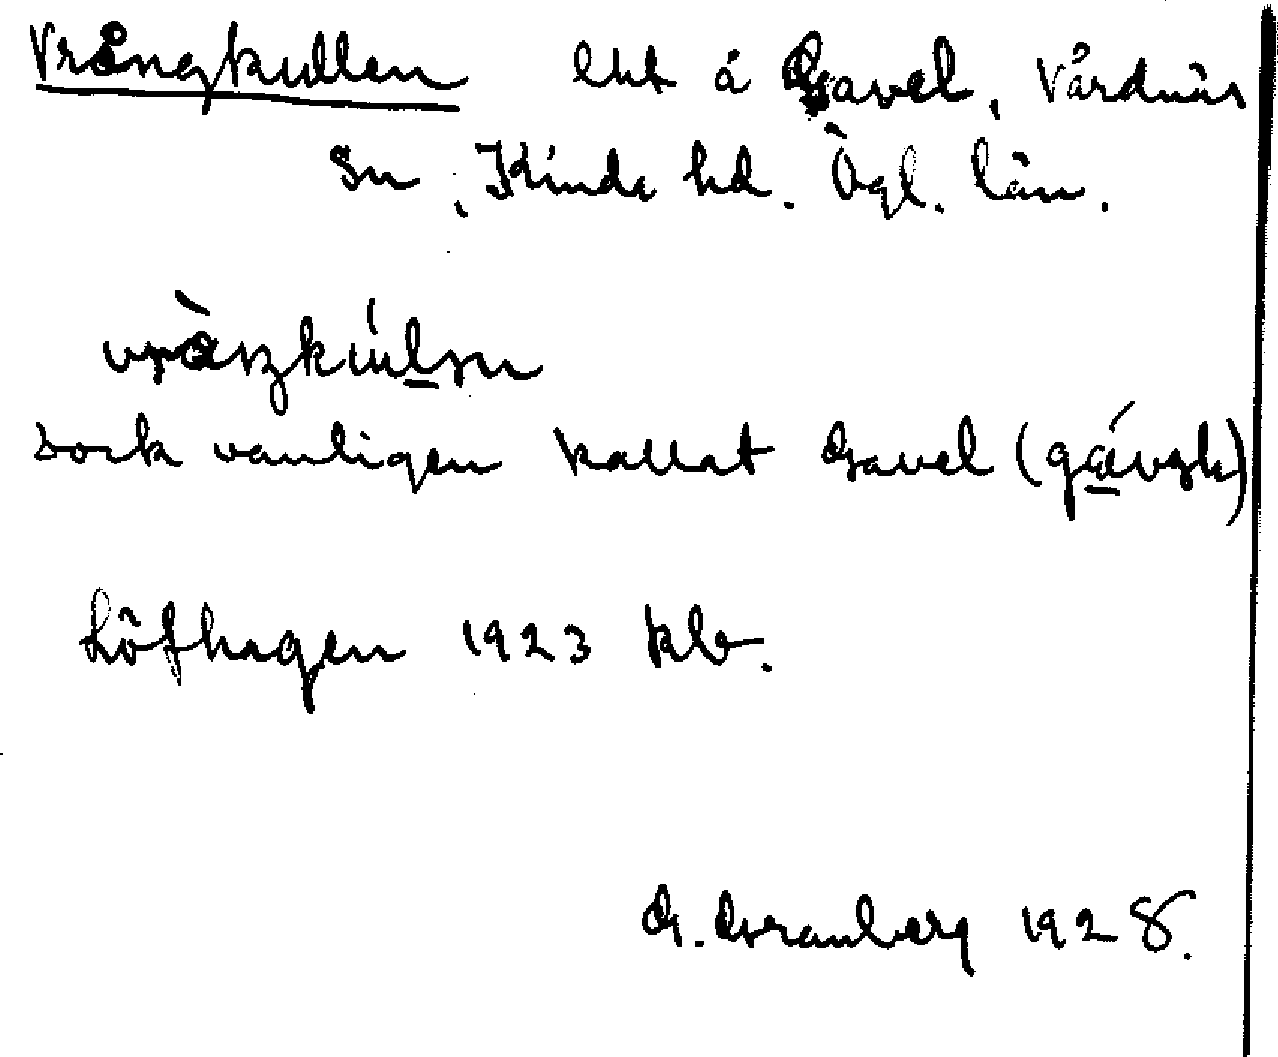 Vrångkullen lht å Gavel, Vårdnäs
sn, Kinda hd. Ögl. län.
sock vanligen kallat Gavel
Löfhagen 1923 klv.
G. Granberg 1928.